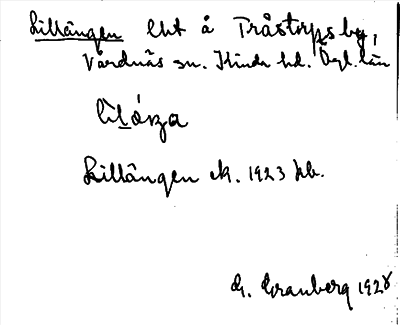 Lillängen lht å Tråstorps by,
Vårdnäs sn. Kinda hd. Ögl. län
Lillängen ek. 1923 kb.
G. Granberg 1928